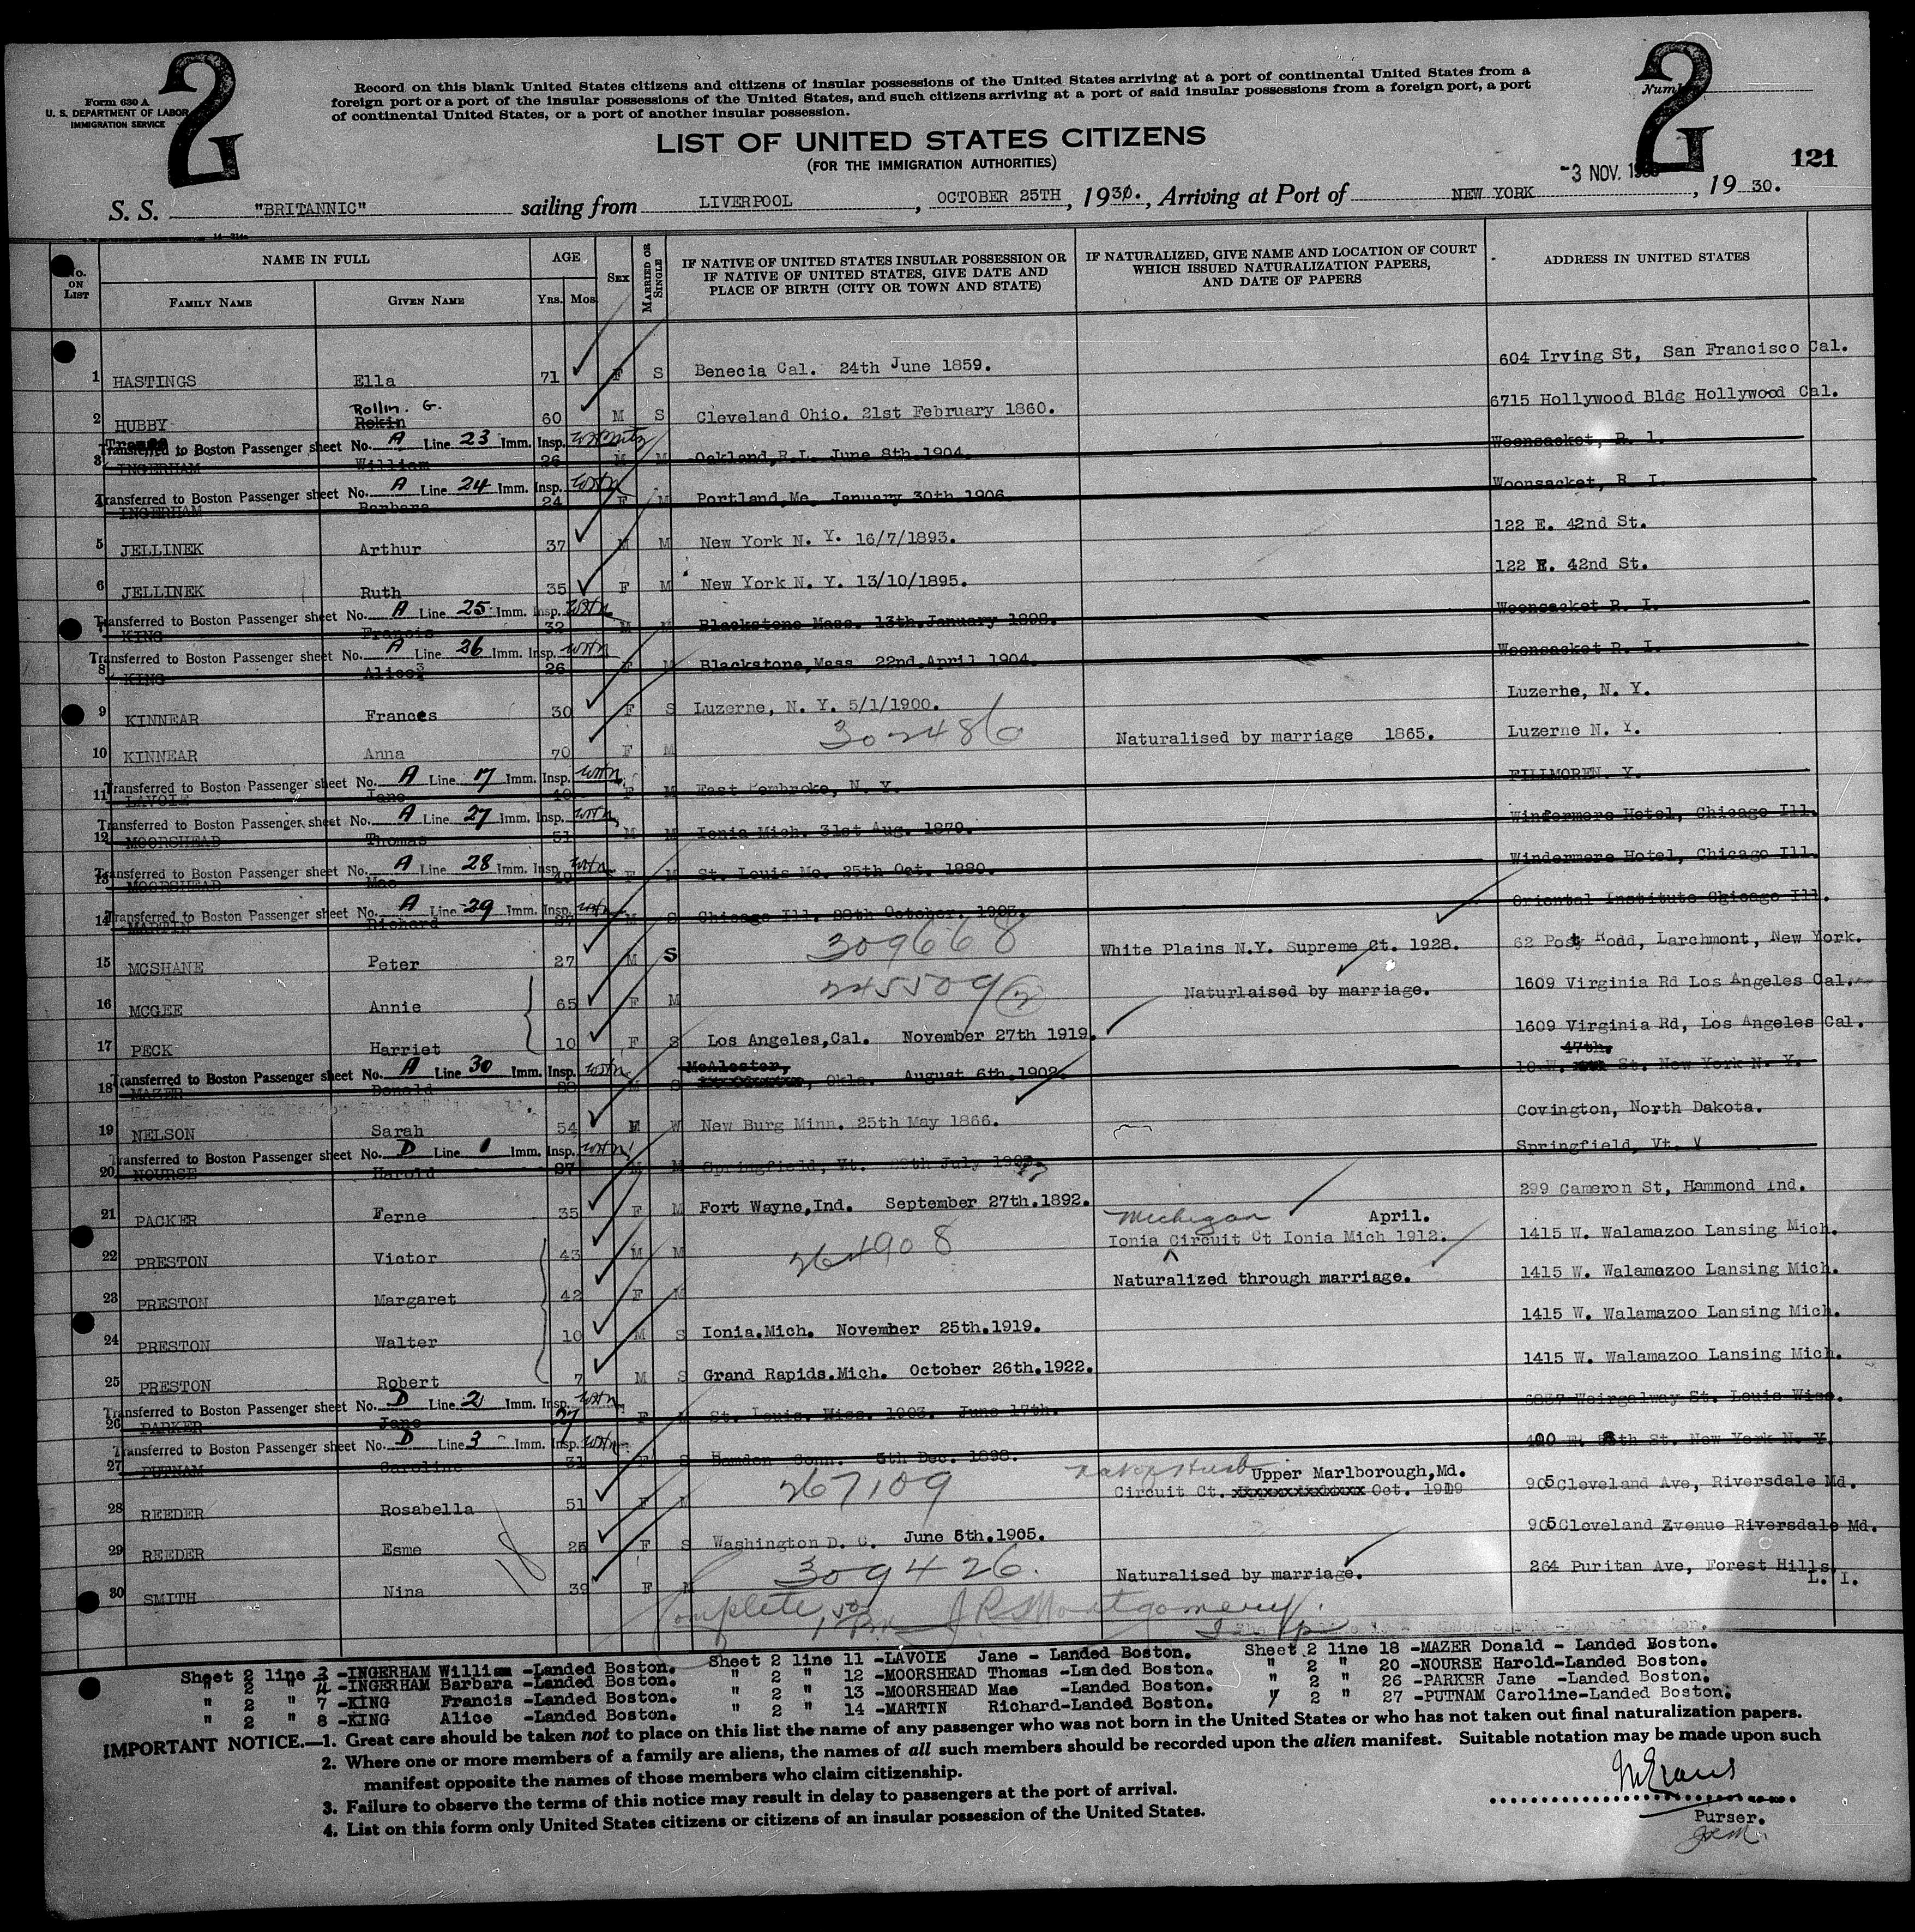 2
2
Form 630 A
U. S. DEPARTMENT OF LABOR
IMMIGRATION SERVICE
Record on this blank United States citizens and citizens of insular possessions of the United States arriving at a port of continental United States from a
foreign port or a port of the insular possessions of the United States, and such citizens arriving at a port of said insular possessions from a foreign port, a port
of continental United States, or a port of another insular possession.
LIST OF UNITED STATES CITIZENS
(FOR THE IMMIGRATION AUTHORITIES)
121
-3 NOV.
S. S. "BRITANNIC" sailing from LIVERPOOL, OCTOBER 25TH, 1930., Arriving at Port of NEW YORK, 19 30.
No. ON LIST
NAME IN FULL
FAMILY NAME
GIVEN NAME
AGE
YRS. MOS.
SEX
MARRIED OR SINGLE
IF NATIVE OF UNITED STATES INSULAR POSSESSION OR
IF NATIVE OF UNITED STATES, GIVE DATE AND
PLACE OF BIRTH (CITY OR TOWN AND STATE)
IF NATURALIZED, GIVE NAME AND LOCATION OF COURT
WHICH ISSUED NATURALIZATION PAPERS,
AND DATE OF PAPERS
ADDRESS IN UNITED STATES
1 HASTINGS Ella 71 F S Benecia Cal. 24th June 1859. 604 Irving St, San Francisco Cal.
Rollin. G.
2 HUBBY Rokin 60 M S Cleveland Ohio. 21st February 1860. 6715 Hollywood Bldg Hollywood Cal.
Transferred to Boston Passenger sheet No. A Line 23 Imm. Insp.
3 INGERHAM William 26 M M Oakland, R.I. June 8th.1904. Woonsacket, R. I.
Transferred to Boston Passenger sheet No. A Line 24 Imm. Insp.
4 INGERHAM Barbara 24 F M Portland, Me. January 30th 1906. Woonsacket, R. I.
5 JELLINEK Arthur 37 M M New York N. Y. 16/7/1893. 122 E. 42nd St.
6 JELLINEK Ruth 35 F M New York N. Y. 13/10/1895. 122 E. 42nd St.
Transferred to Boston Passenger sheet No. A Line 25 Imm. Insp.
7 KING Francis 32 M M Blackstone Mass. 13th.January 1898. Woonsacket R. I.
Transferred to Boston Passenger sheet No. A Line 26 Imm. Insp.
8 KING Alice 26 F M Blackstone, Mass 22nd.April 1904. Woonsacket R. I.
9 KINNEAR Frances 30 F S Luzerne, N. Y. 5/1/1900. Luzerhe, N. Y.
302486
10 KINNEAR Anna 70 F M Naturalised by marriage 1865. Luzerne N. Y.
Transferred to Boston Passenger sheet No. A Line 17 Imm. Insp.
11 LAVOIE Jane 40 F M East Pembroke, N. Y. FILLMORE N. Y.
Transferred to Boston Passenger sheet No. A Line 27 Imm. Insp.
12 MOORSHEAD Thomas 51 M M Ionia Mich. 31st Aug. 1879. Windermere Hotel, Chicago Ill.
Transferred to Boston Passenger sheet No. A Line 28 Imm. Insp.
13 MOORSHEAD Mae F M St. Louis Mo. 25th Oct. 1880. Windermere Hotel, Chicago Ill.
Transferred to Boston Passenger sheet No. A Line 29 Imm. Insp.
14 MARTIN Richard 27 M S Chicago Ill. October. 1903. Oriental Institute Chicago Ill.
309668
15 MCSHANE Peter 27 M S White Plains N.Y. Supreme Ct. 1928. 62 Post Rodd, Larchmont, New York.
245509 (2)
16 MCGEE Annie 65 F M Naturlaised by marriage. 1609 Virginia Rd Los Angeles Cal.
17 PECK Harriet 10 F S Los Angeles, Cal. November 27th 1919. 1609 Virginia Rd, Los Angeles Cal.
Transferred to Boston Passenger sheet No. A Line 30 Imm. Insp.
47th.
McAlester,
18 MAZER Donald M S Okla. August 6th.1902. 10 W. St. New York N. Y.
19 NELSON Sarah 54 W New Burg Minn. 25th May 1866. Covington, North Dakota.
Transferred to Boston Passenger sheet No. D Line 1 Imm. Insp.
20 NOURSE Harold 37 M M Springfield, Vt. July Springfield, Vt.
21 PACKER Ferne 35 F M Fort Wayne, Ind. September 27th.1892. 299 Cameron St, Hammond Ind.
Michigan April.
264908
22 PRESTON Victor 43 M M Ionia Circuit Ct Ionia Mich 1912. 1415 W. Walamazoo Lansing Mich.
23 PRESTON Margaret 42 F M Naturalized through marriage. 1415 W. Walamazoo Lansing Mich.
24 PRESTON Walter 10 M S Ionia.Mich. November 25th.1919. 1415 W. Walamazoo Lansing Mich.
25 PRESTON Robert 7 M S Grand Rapids.Mich. October 26th.1922. 1415 W. Walamazoo Lansing Mich.
Transferred to Boston Passenger sheet No. D Line 2 Imm. Insp.
26 PARKER Jane 27 F M St. Louis. Miss. 1903. June 17th. St. Louis Wisc.
Transferred to Boston Passenger sheet No. D Line 3 Imm. Insp.
27 PUTNAM Caroline 31 F S Hamden Conn. 5th Dec. 1898. St. New York N. Y.
267109
Upper Marlborough, Md.
28 REEDER Rosabella 51 F M Circuit Ct. Oct. 1919 905 Cleveland Ave, Riversdale Md.
29 REEDER Esme 25 F S Washington D. C. June 6th.1905. 905 Cleveland Zvenue Riversdale Md.
309426.
30 SMITH Nina 39 F M Naturalised by marriage. 264 Puritan Ave, Forest Hills,
L. I.
18
Complete J R S Montgomery.
Sheet 2 line 3 -INGERHAM William -Landed Boston. Sheet 2 line 11 -LAVOIE Jane - Landed Boston. Sheet 2 line 18 -MAZER Donald - Landed Boston.
" 2 " 4 -INGERHAM Barbara -Landed Boston. " 2 " 12 -MOORSHEAD Thomas -Landed Boston. " 2 " 20 -NOURSE Harold-Landed Boston.
" 2 " 7 -KING Francis -Landed Boston. " 2 " 13 -MOORSHEAD Mae -Landed Boston. " 2 " 26 -PARKER Jane -Landed Boston.
" 2 " 8 -KING Alice -Landed Boston. " 2 " 14 -MARTIN Richard-Landed Boston. " 2 " 27 -PUTNAM Caroline-Landed Boston.
IMPORTANT NOTICE.—1. Great care should be taken not to place on this list the name of any passenger who was not born in the United States or who has not taken out final naturalization papers.
2. Where one or more members of a family are aliens, the names of all such members should be recorded upon the alien manifest. Suitable notation may be made upon such
manifest opposite the names of those members who claim citizenship.
3. Failure to observe the terms of this notice may result in delay to passengers at the port of arrival.
4. List on this form only United States citizens or citizens of an insular possession of the United States.
Purser.